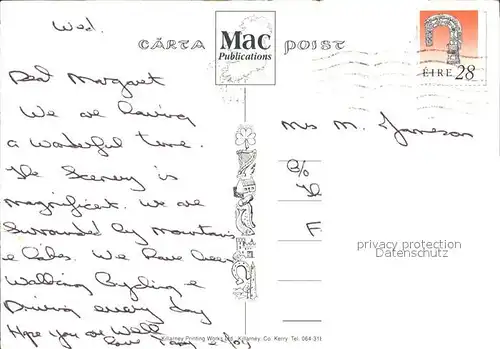 Wed.
CÁRTA
Mac
Publications
POIST
ÉIRE 28
Dear Margaret
We are having
a wonderful time.
The Scenery is
magnificent. We are
Surrounded by mountains
& lakes. We have been
Walking Cycling &
Driving every day
Hope you are Well
love Tony &
Mrs M. Jameson
c/o
The
F
privacy protection
Datenschutz
Killarney Printing Works Ltd., Killarney, Co. Kerry Tel. 064-31